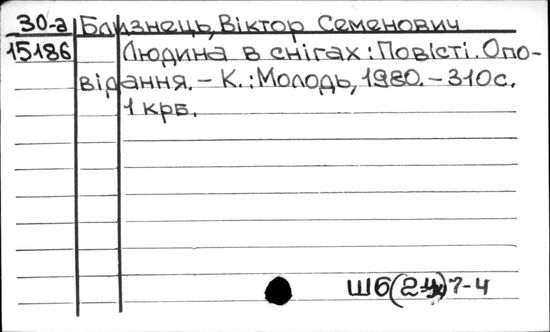 30-а Близнець, Віктор Семенович
15186 Людина в снігах: Повісті. Опо-
відання. – К.: Молодь, 1980. – 310с.
1 крб.
Ш6(2Ук)7-4